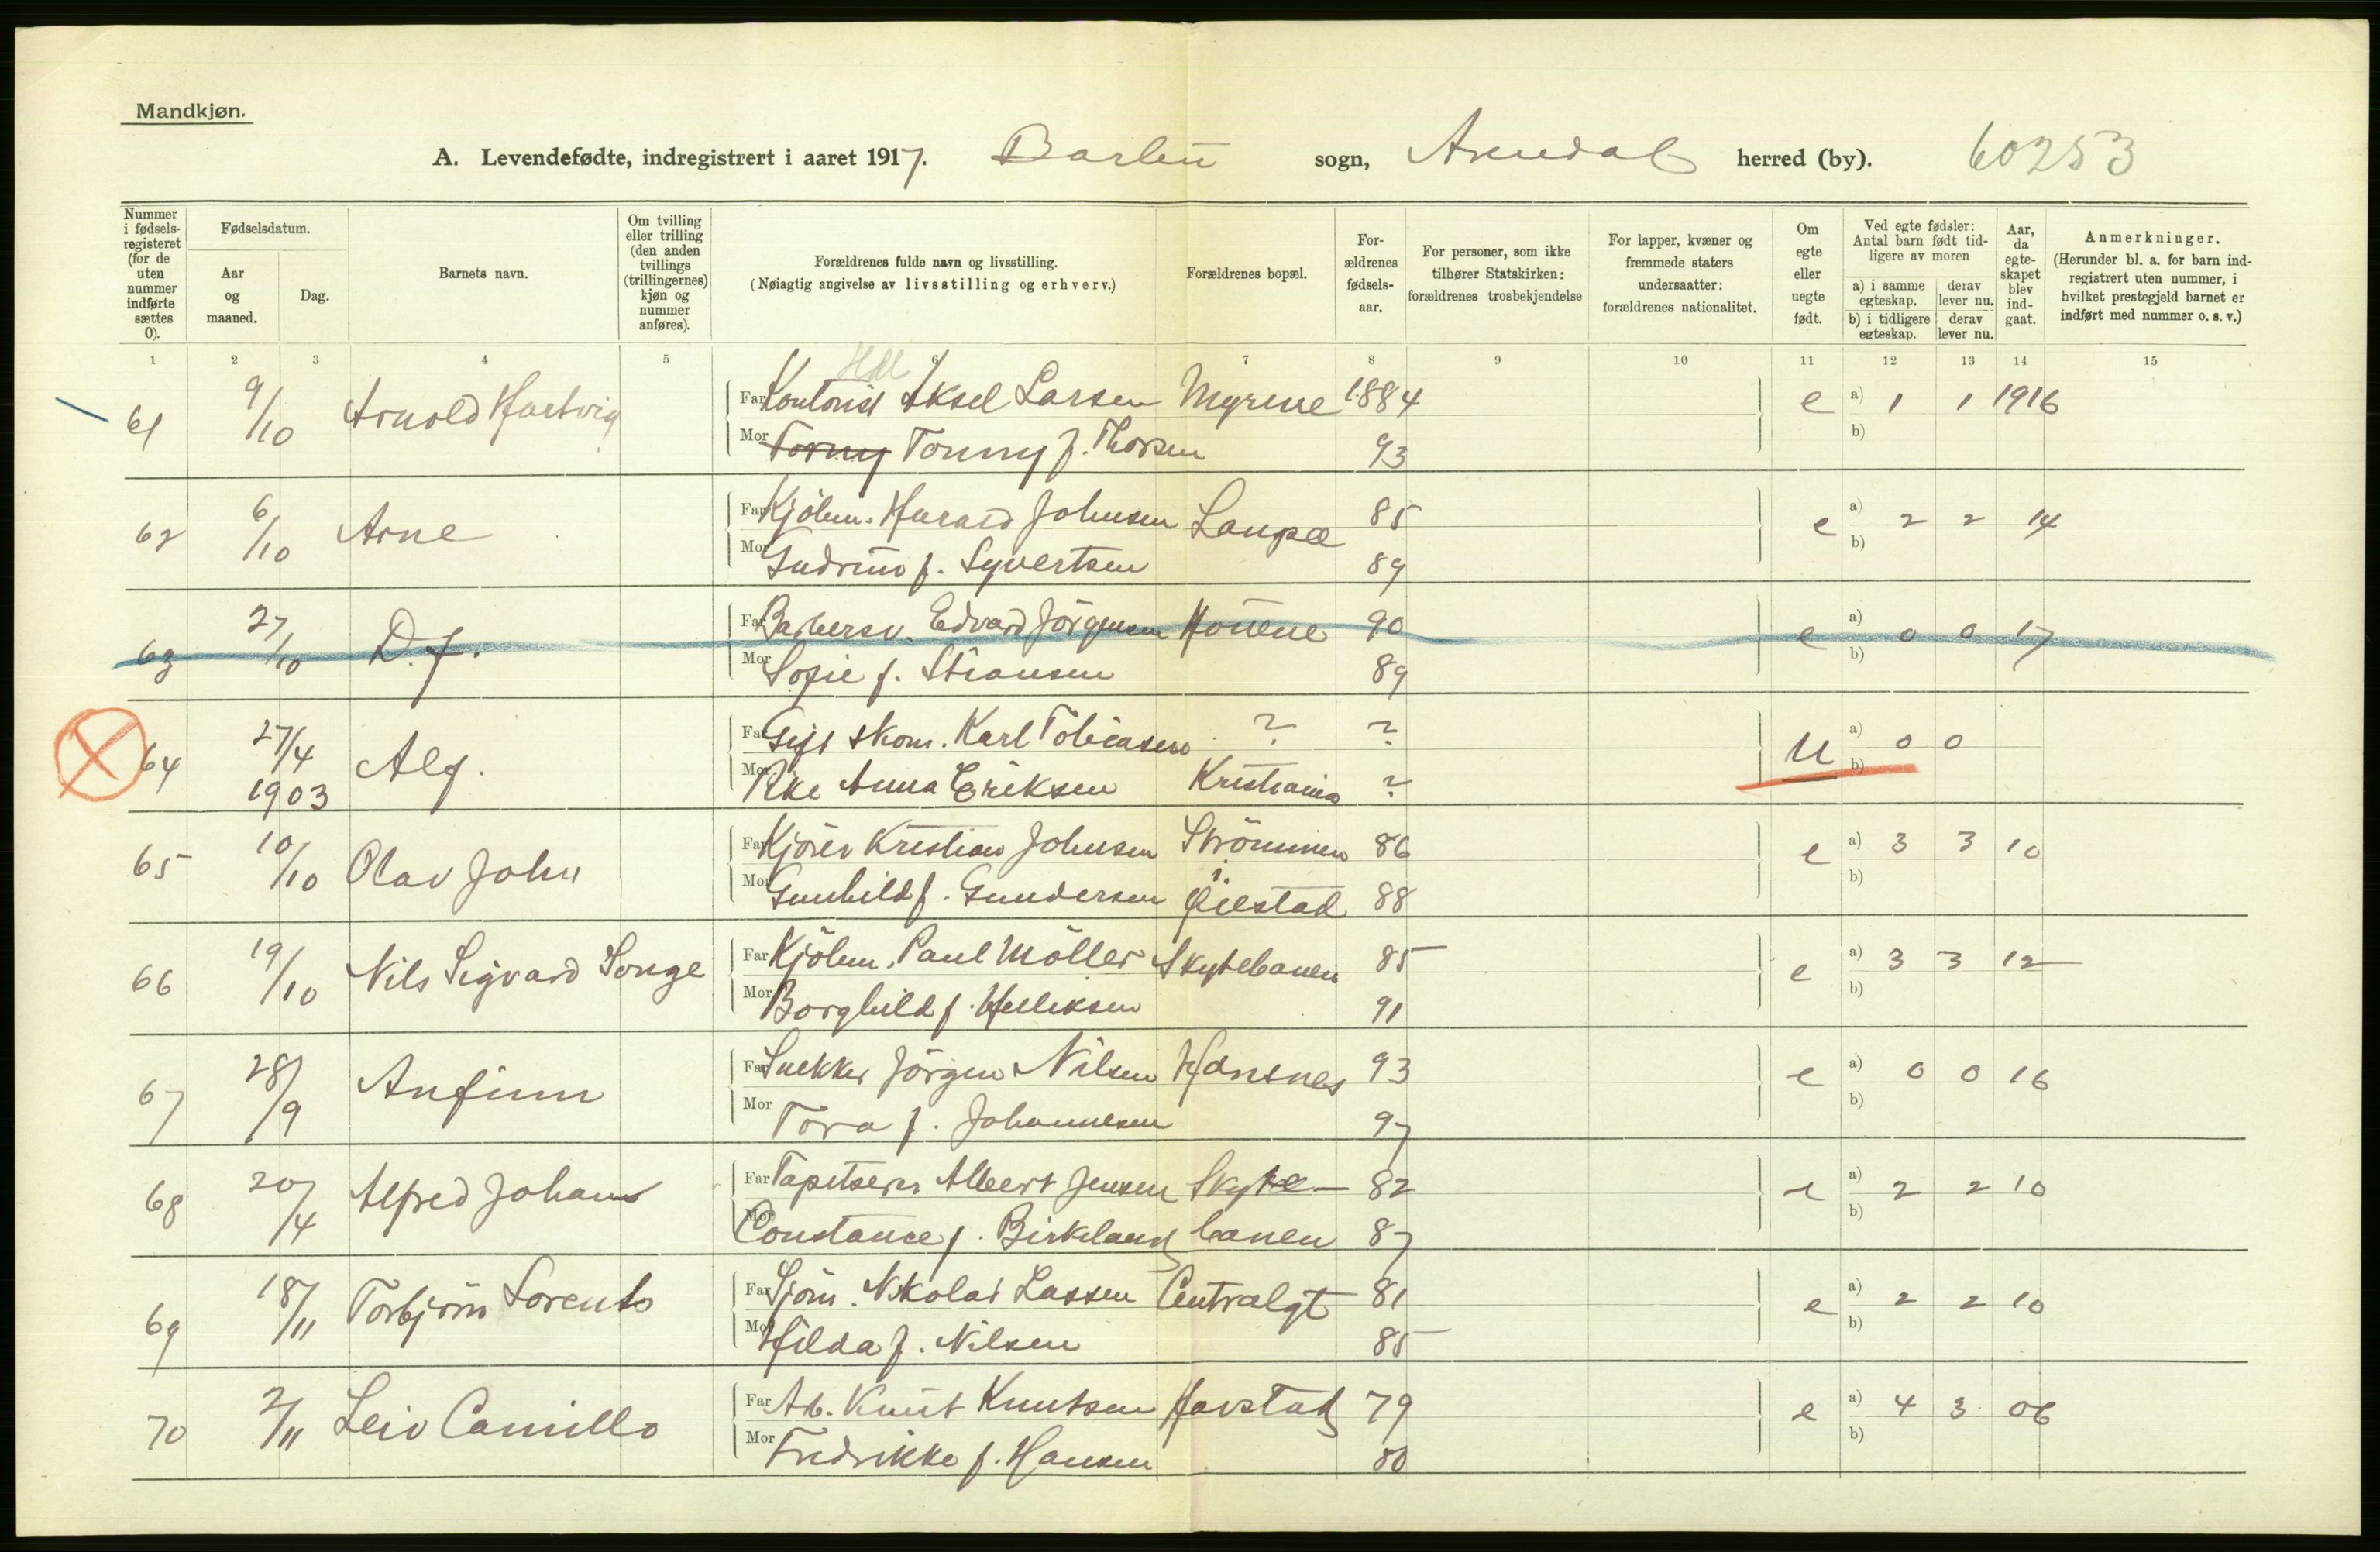 Mandkjøn.
A. Levendefødte, indregistrert i aaret 1917. Barbu sogn, Arendal herred (by). 60253
Nummer i fødsels-registeret (for de uten nummer indførte sættes 0).
Fødselsdatum.
Aar og maaned.
Dag.
Barnets navn.
Om tvilling eller trilling (den anden tvillings (trillingernes) kjøn og nummer anføres).
Forældrenes fulde navn og livsstilling.
(Nøiagtig angivelse av livsstilling og erhverv.)
Forældrenes bopæl.
For-ældrenes fødsels-aar.
For personer, som ikke tilhører Statskirken: forældrenes trosbekjendelse
For lapper, kvæner og fremmede staters undersaatter: forældrenes nationalitet.
Om egte eller uegte født.
Ved egte fødsler: Antal barn født tid-ligere av moren
a) i samme egteskap.
derav lever nu.
b) i tidligere egteskap.
derav lever nu.
Aar, da egte-skapet blev ind-gaat.
Anmerkninger.
(Herunder bl. a. for barn ind-registrert uten nummer, i hvilket prestegjeld barnet er indført med nummer o. s. v.)
1 2 3 4 5 6 7 8 9 10 11 12 13 14 15
61 9/10 Arnold Hartvig Far Kontorist Aksel Larsen Myrene 1884 e a) 1 1 1916
Mor Torny Tonny f. Thorsen 93 b)
62 6/10 Arne Far Kjølm. Harald Johnsen Langsæ 85 e a) 2 2 14
Mor Gudrun f. Syvertsen 89 b)
63 27/10 D.f. Far Barbersv. Edvard Jörgensen 90 e a) 0 0 17
Mor Sofie f. Stiansen 89 b)
64 27/4 1903 Alf. Far Gift skom. Karl Tobiasen ? ? U a) 0 0
Mor Pike Anna Eriksen Kristiania ? b)
65 10/10 Olav John Far Kjörer Kristian Johnsen Strömmen 86 e a) 3 3 10
Mor Gunhild f. Gundersen Öiestad 88 b)
66 19/10 Nils Sigvard Songe Far Kjölm. Paul Möller Skytebanen 85 e a) 3 3 12
Mor Borghild f. 91 b)
67 28/9 Anfinn Far Snekker Jörgen Nilsen 93 e a) 0 0 16
Mor Tora f. Johannesen 97 b)
68 20/4 Alfred Johan Far Tapetserer Albert Jensen Skyte- 82 e a) 2 2 10
Mor Constance f. Birkeland banen 87 b)
69 18/11 Torbjörn Lorents Far Sjöm. Nikolai Lassen Centralgt 81 e a) 2 2 10
Mor Hilda f. Nilsen 85 b)
70 2/11 Leiv Camillo Far Arb. Knut Knutsen Havstad 79 e a) 4 3 06
Mor Fredrikke f. Hansen 80 b)